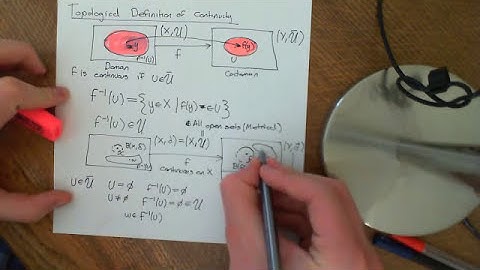 Topological Definition of Continuity
(X, U) (X, Ũ)
y f(y)
f⁻¹(U) f U
Domain Codomain
f is continuous if U∈Ũ
f⁻¹(U) = {y∈X | f(y) ∈ U}
f⁻¹(U) ∈ U All open sets (Metrical)
(X, d) = (X, U)
B(x, δ)
f
continuous on X
U∈Ũ U = ∅ f⁻¹(U) = ∅
U ≠ ∅ f⁻¹(U) = ∅ ∈ U
w∈ f⁻¹(U)